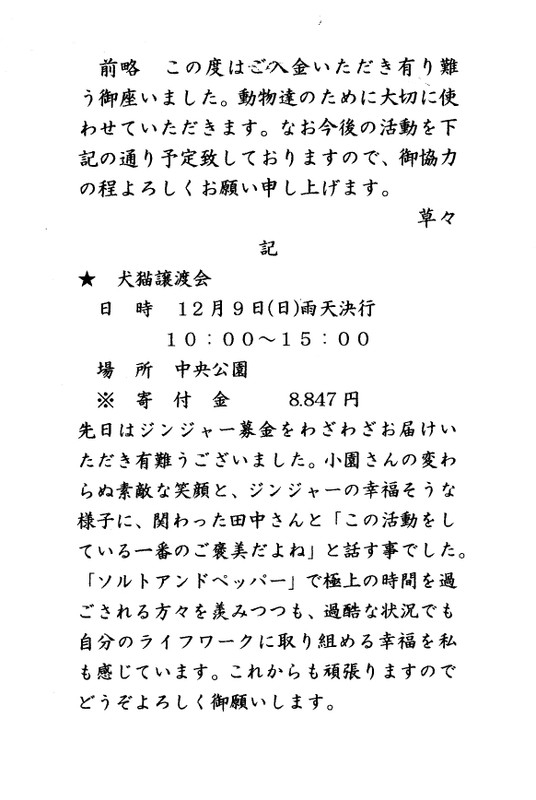 前略　この度はご入金いただき有り難
う御座いました。動物達のために大切に使
わせていただきます。なお今後の活動を下
記の通り予定致しておりますので、御協力
の程よろしくお願い申し上げます。
草々
記
★　犬猫譲渡会
日　時　１２月９日(日)雨天決行
１０：００～１５：００
場　所　中央公園
※　寄　付　金　　　8.847 円
先日はジンジャー募金をわざわざお届けい
ただき有難うございました。小園さんの変わ
らぬ素敵な笑顔と、ジンジャーの幸福そうな
様子に、関わった田中さんと「この活動をし
ている一番のご褒美だよね」と話す事でした。
「ソルトアンドペッパー」で極上の時間を過
ごされる方々を羨みつつも、過酷な状況でも
自分のライフワークに取り組める幸福を私
も感じています。これからも頑張りますので
どうぞよろしく御願いします。